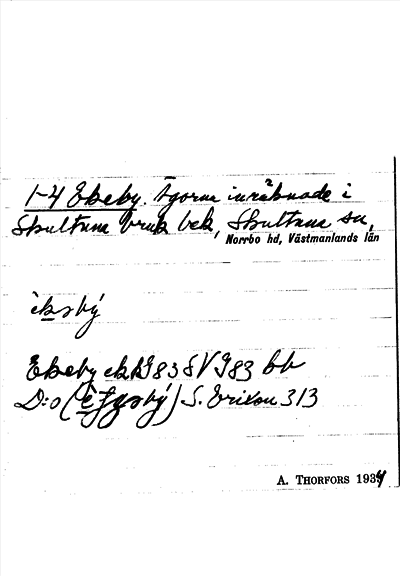 1-4 Ekeby. Ägorna inräknade i
Skultuna bruk bek, Skultuna sn,
Norrbo hd, Västmanlands län
èkₔbý
Ekeby ekbG83 SV G83 bb
D:o S. Erixon 313
A. THORFORS 1934